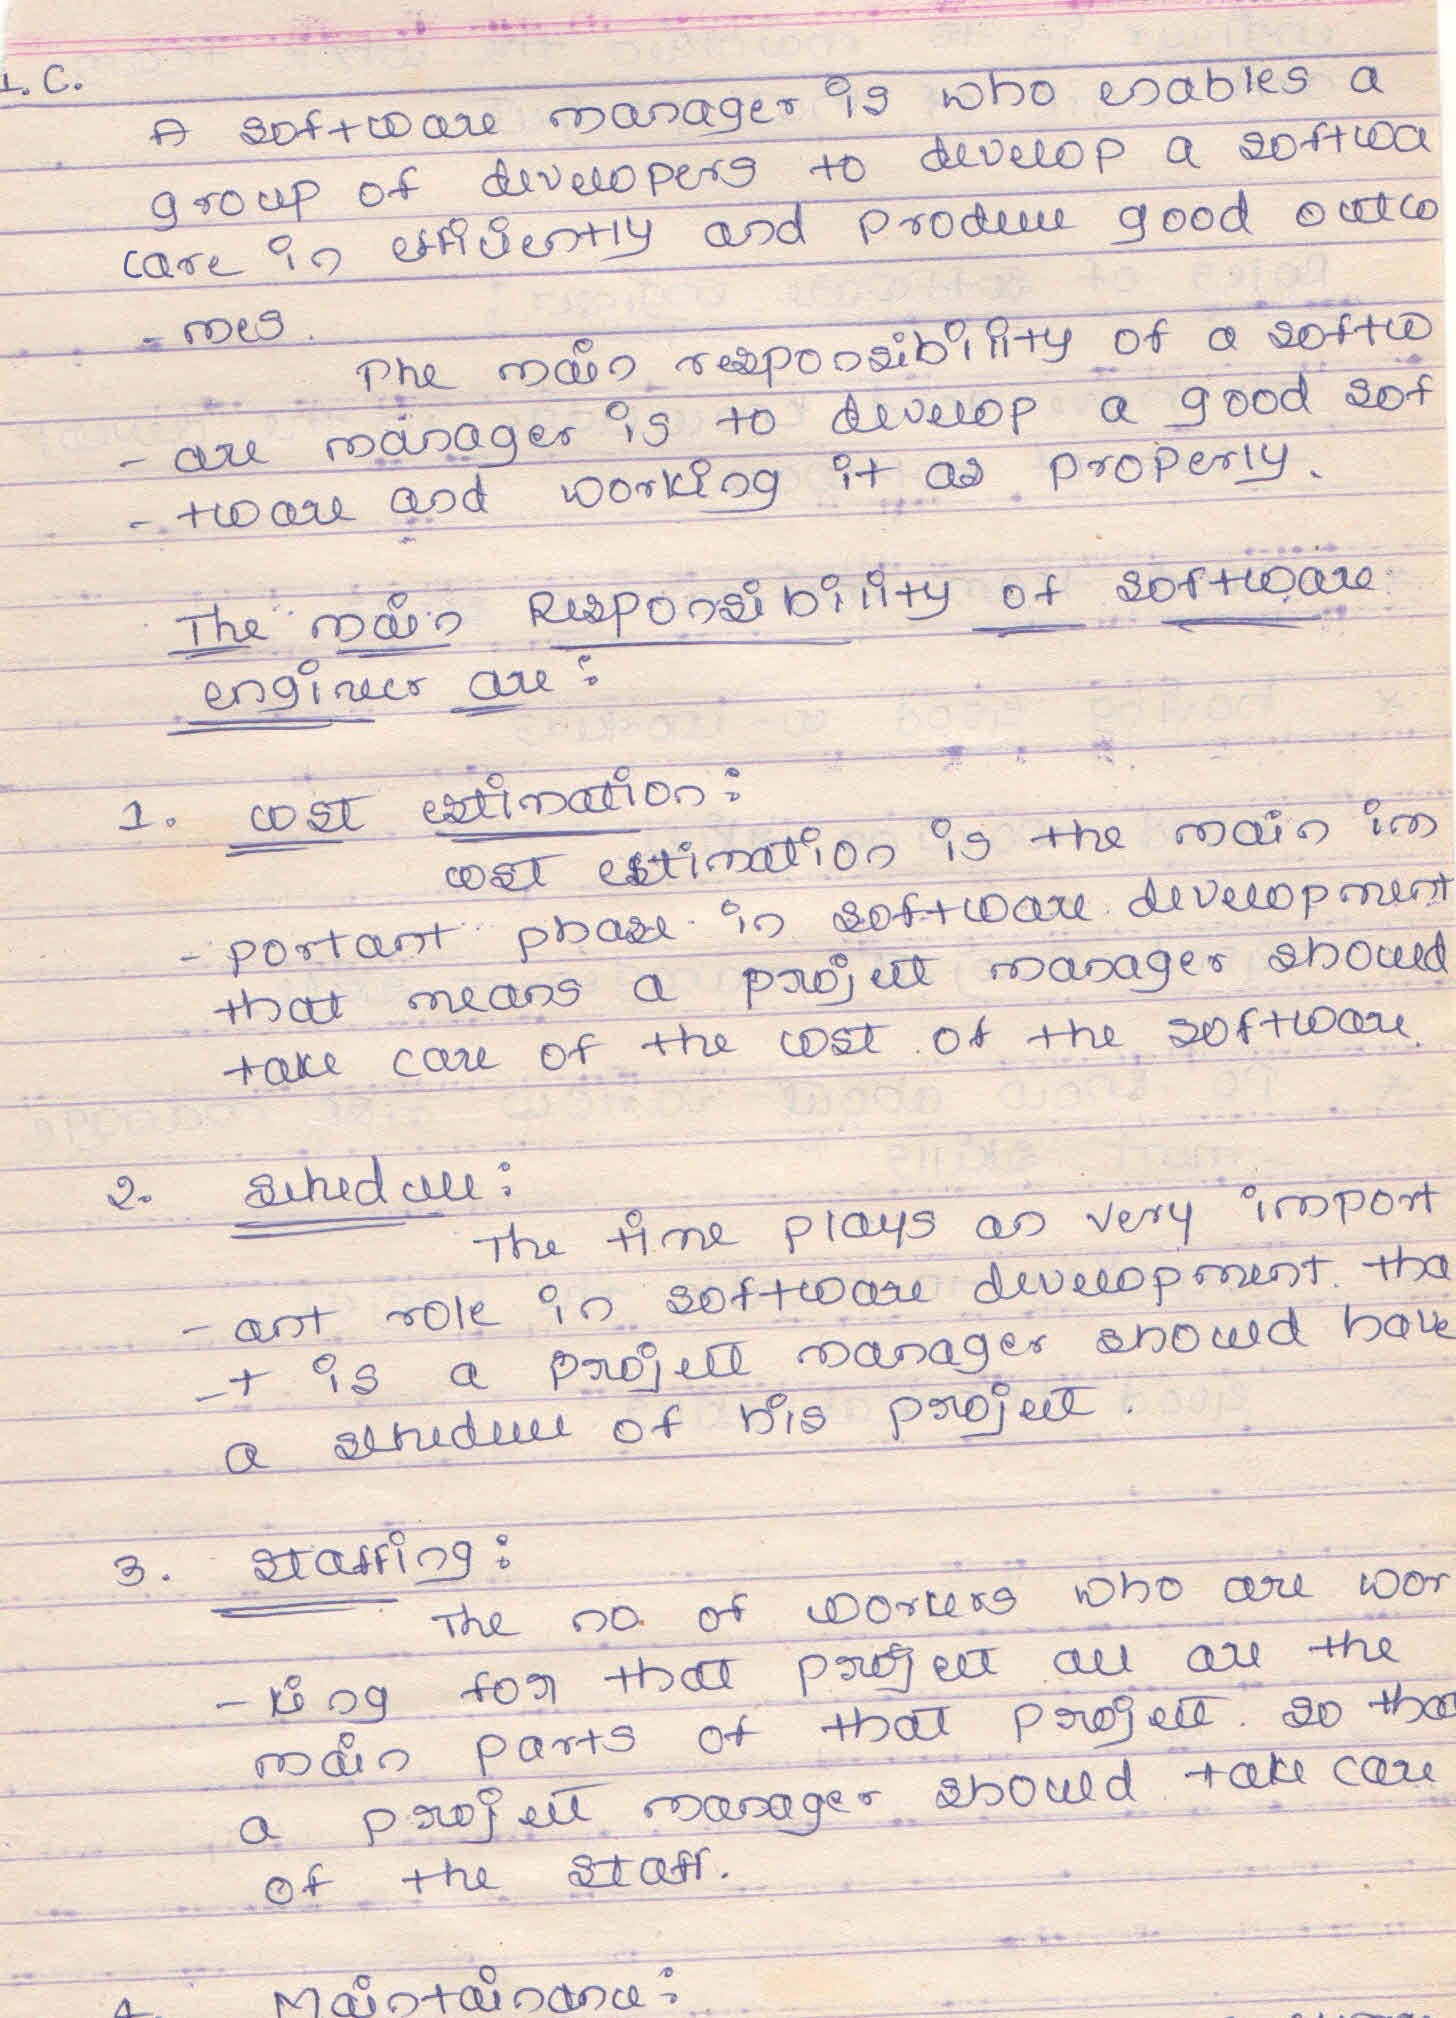 1. C.
A software manager is who enables a
group of developers to develop a softwa
care in efficiently and produce good outco
- mes.
The main responsibility of a softw
- are manager is to develop a good sof
- tware and working it as properly.
The main Responsibility of software
engineer are:
1. cost estimation:
cost estimation is the main im
- portant phase in software development
that means a project manager should
take care of the cost of the software.
2. schedule:
The time plays an very import
- ant role in software development. tha
- t is a project manager should have
a schedule of his project.
3. staffing:
The no. of workers who are wor
- king for that project all are the
main parts of that project. so tha
a project manager should take care
of the staff.
4. Maintainance: